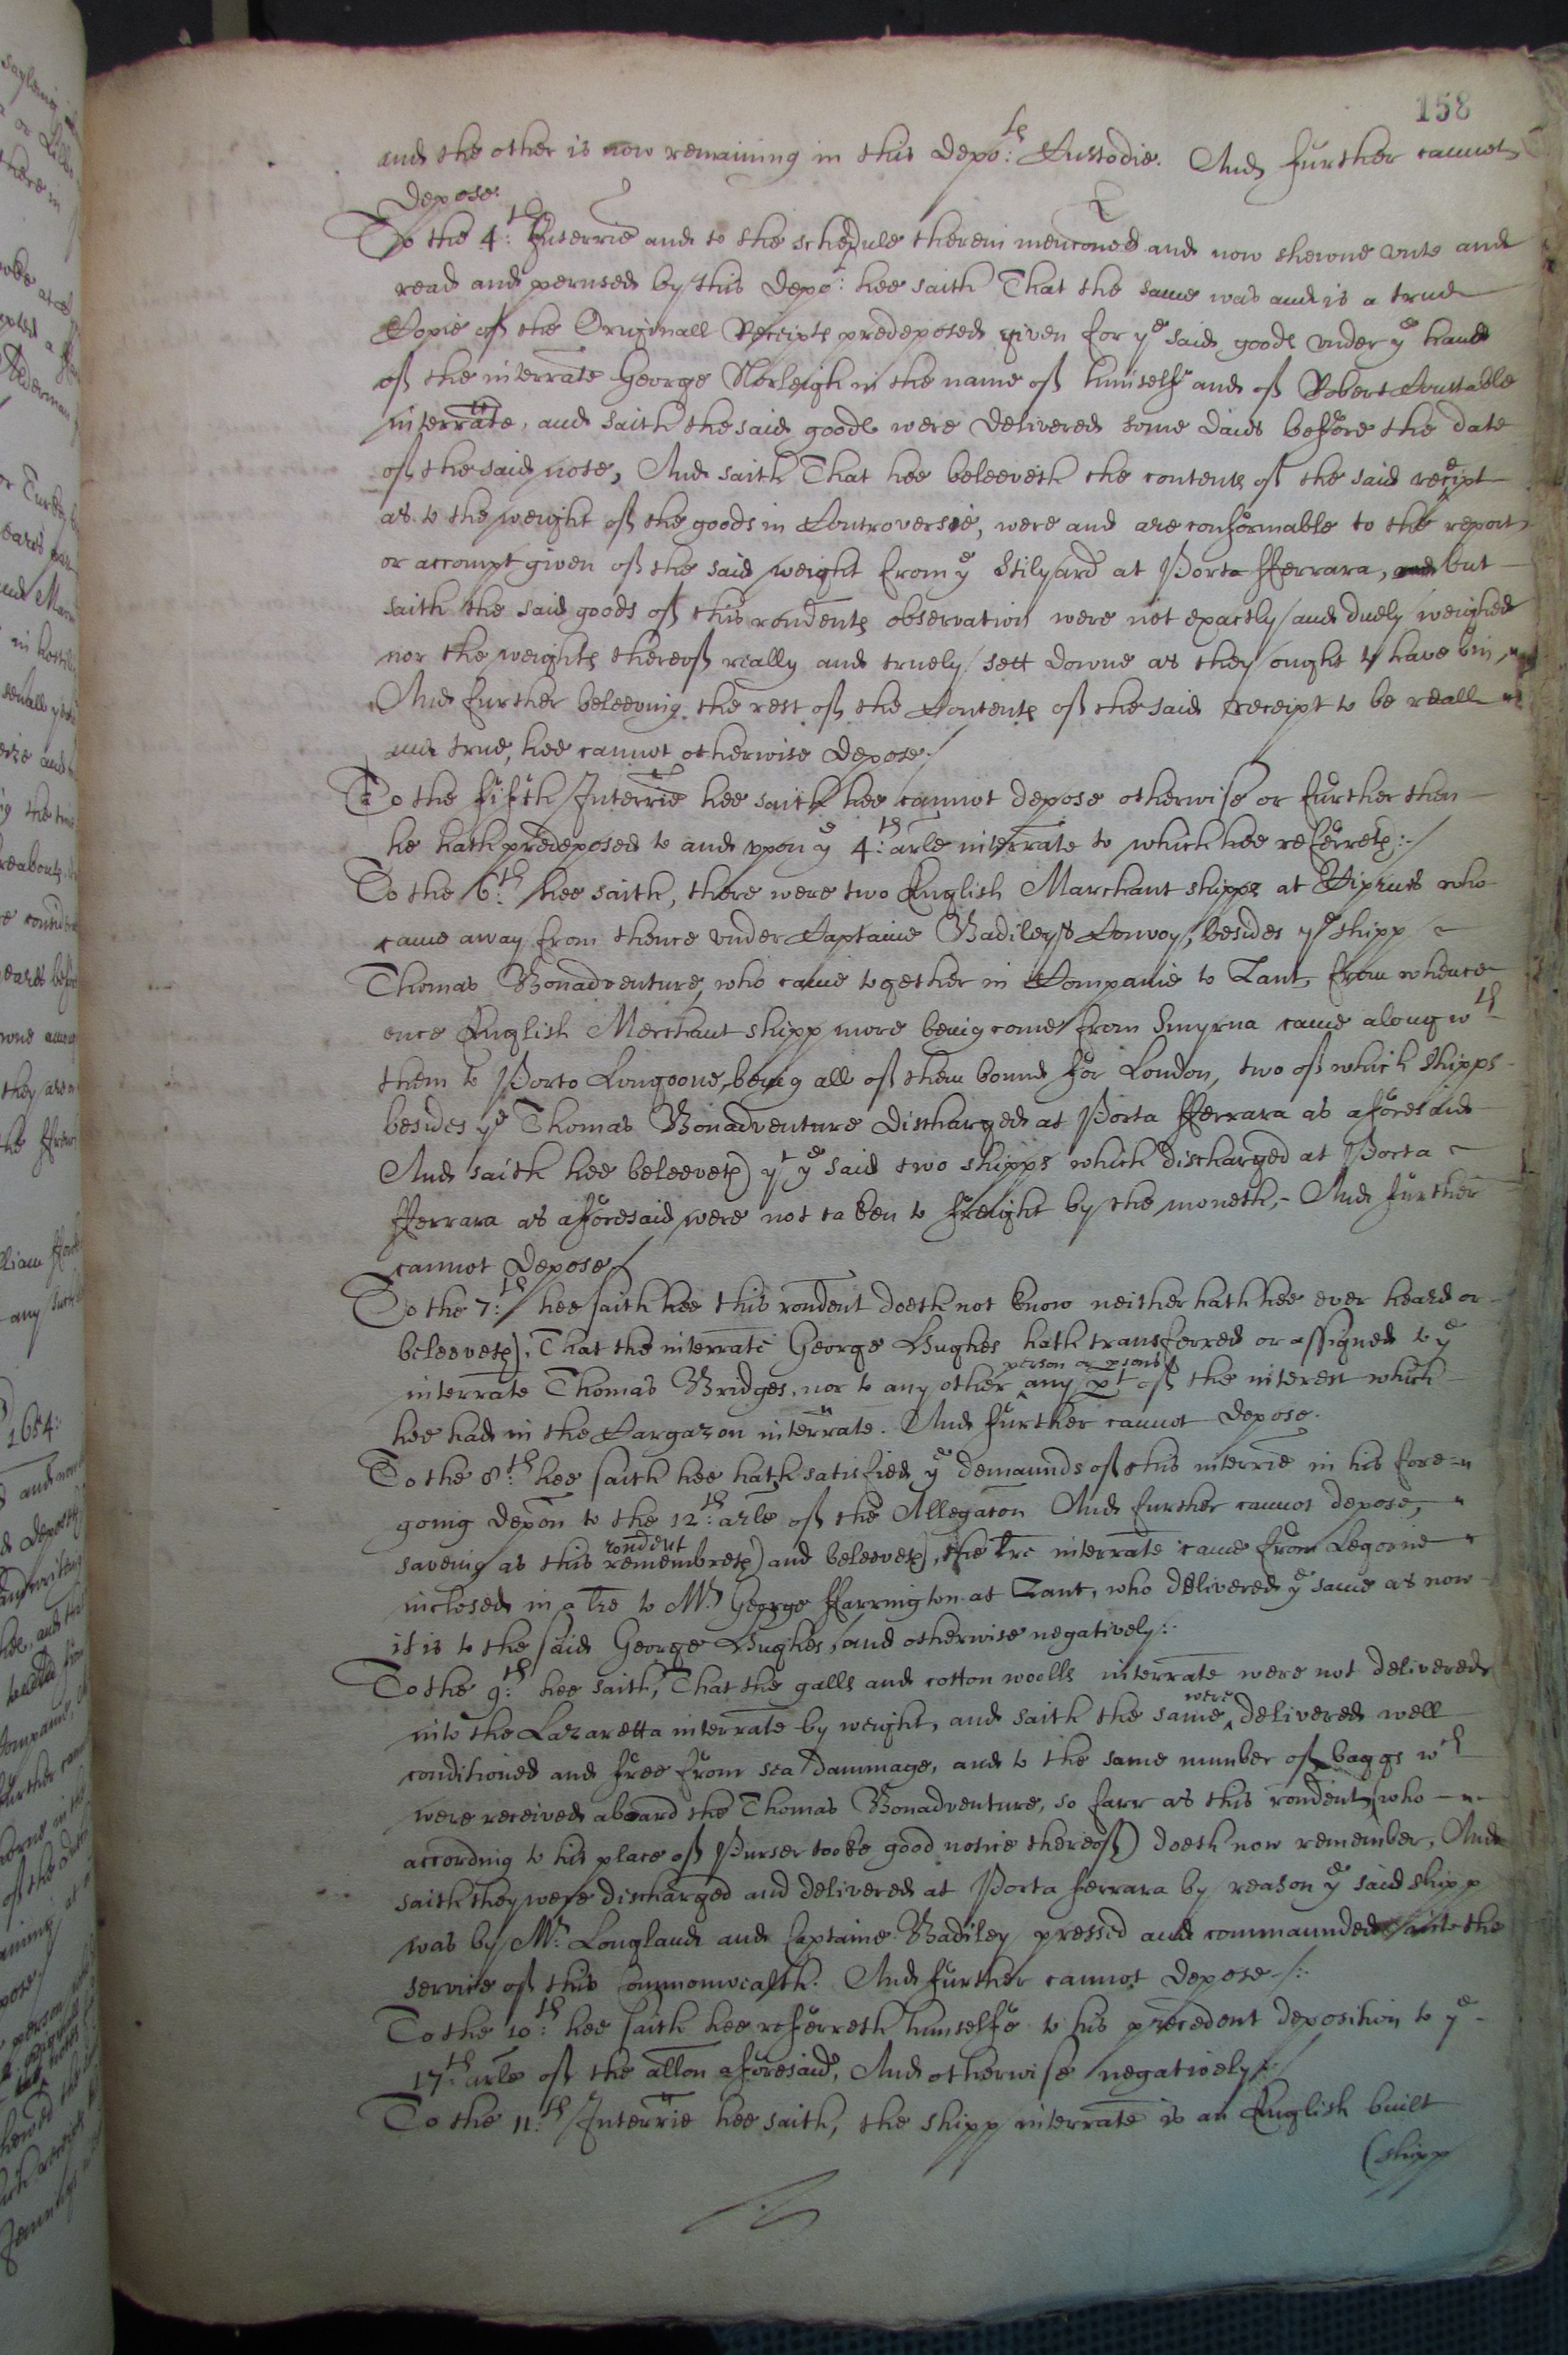 158
and the other is now remaining in this depo:ts Custodie. And further cannot
depose.
To the 4:th Interrie and to the schedule therein menconed and now shewne vnto and
read and perused by this depo:t hee saith That the same was and is a true
Copie of the Originall Receipts predeposed given for ye said goods vnder ye hand
of the interrate George Norleigh in the name of himselfe and of Robert Constable
interrate, and saith the said goods were delivered some daies before the date
of the said note, And saith That hee beleeveth the contents of the said receipt
as to the weight of the goods in Controversie, were and are conformable to the report
or accompt given of the said weight from ye Stilyard at Porto fferrara, but
saith the said goods of this rondents observation were not exactly and duely weighed
nor the weights thereof really and truely sett downe as they ought to have bin,
And further beleeving the rest of the Contents of the said receipt to be reall
and true, hee cannot otherwise depose./
To the fifth Interrie hee saith hee cannot depose otherwise or further then
he hath predeposed to and vpon ye 4:th arle interrate to which hee referreth:/
To the 6:th hee saith, there were two English Marchant shipps at Ciprus who
came away from thence vnder Captaine Badileys Convoy, besides ye shipp
Thomas Bonadventure, who came together in Companie to Zant, from whence
once English Merchant shipp more being come from Smyrna came along wth
them to Porto Longoone, being all of them bound for London, two of which shipps
besides ye Thomas Bonadventure discharged at Porta fferrara as aforesaid
And saith hee beleeveth yt ye said two shipps which discharged at Porta
fferrara as aforesaid were not taken to freight by the moneth, And further
cannot depose/
To the 7:th hee saith hee this rondent doeth not know neither hath hee ever heard or
beleeveth, That the interrate George Hughes hath transferred or assigned to ye
interrate Thomas Bridges, nor to any other person or psons any pt of the interest which
hee had in the Cargazon interrate. And further cannot depose.
To the 8:th hee saith hee hath satisfied ye demaunds of this interrie in his fore=
going depon to the 12:th arle of the Allegaton And further cannot depose,
saveing as this rondent remembreth and beleeveth, the lre interrate came from Legorne
inclosed in a lre to Mr. George Farrington at Zant, who delivered ye same as now
it is to the said George Hughes, and otherwise negatively:
To the 9:th hee saith, That the galls and cotton woolls interrate were not delivered
into the Lazaretta interrate by weight, and saith the same were delivered well
conditioned and free from sea dammage, and to the same number of baggs wch
were received aboard the Thomas Bonadventure, so farr as this rondent (who
according to his place of Purser tooke good notice thereof) doeth now remember. And
saith they were discharged and delivered at Porta ferrara by reason ye said shipp
was by Mr. Longland and Captaine Badiley pressed and commaunded into the
service of this Commonwealth. And further cannot depose./:
To the 10:th hee saith hee referreth himselfe to his precedent deposition to ye
17:th arle of the allon aforesaid, And otherwise negatively/:
To the 11:th Interrie hee saith, the shipp interrate is an English built
(shipp